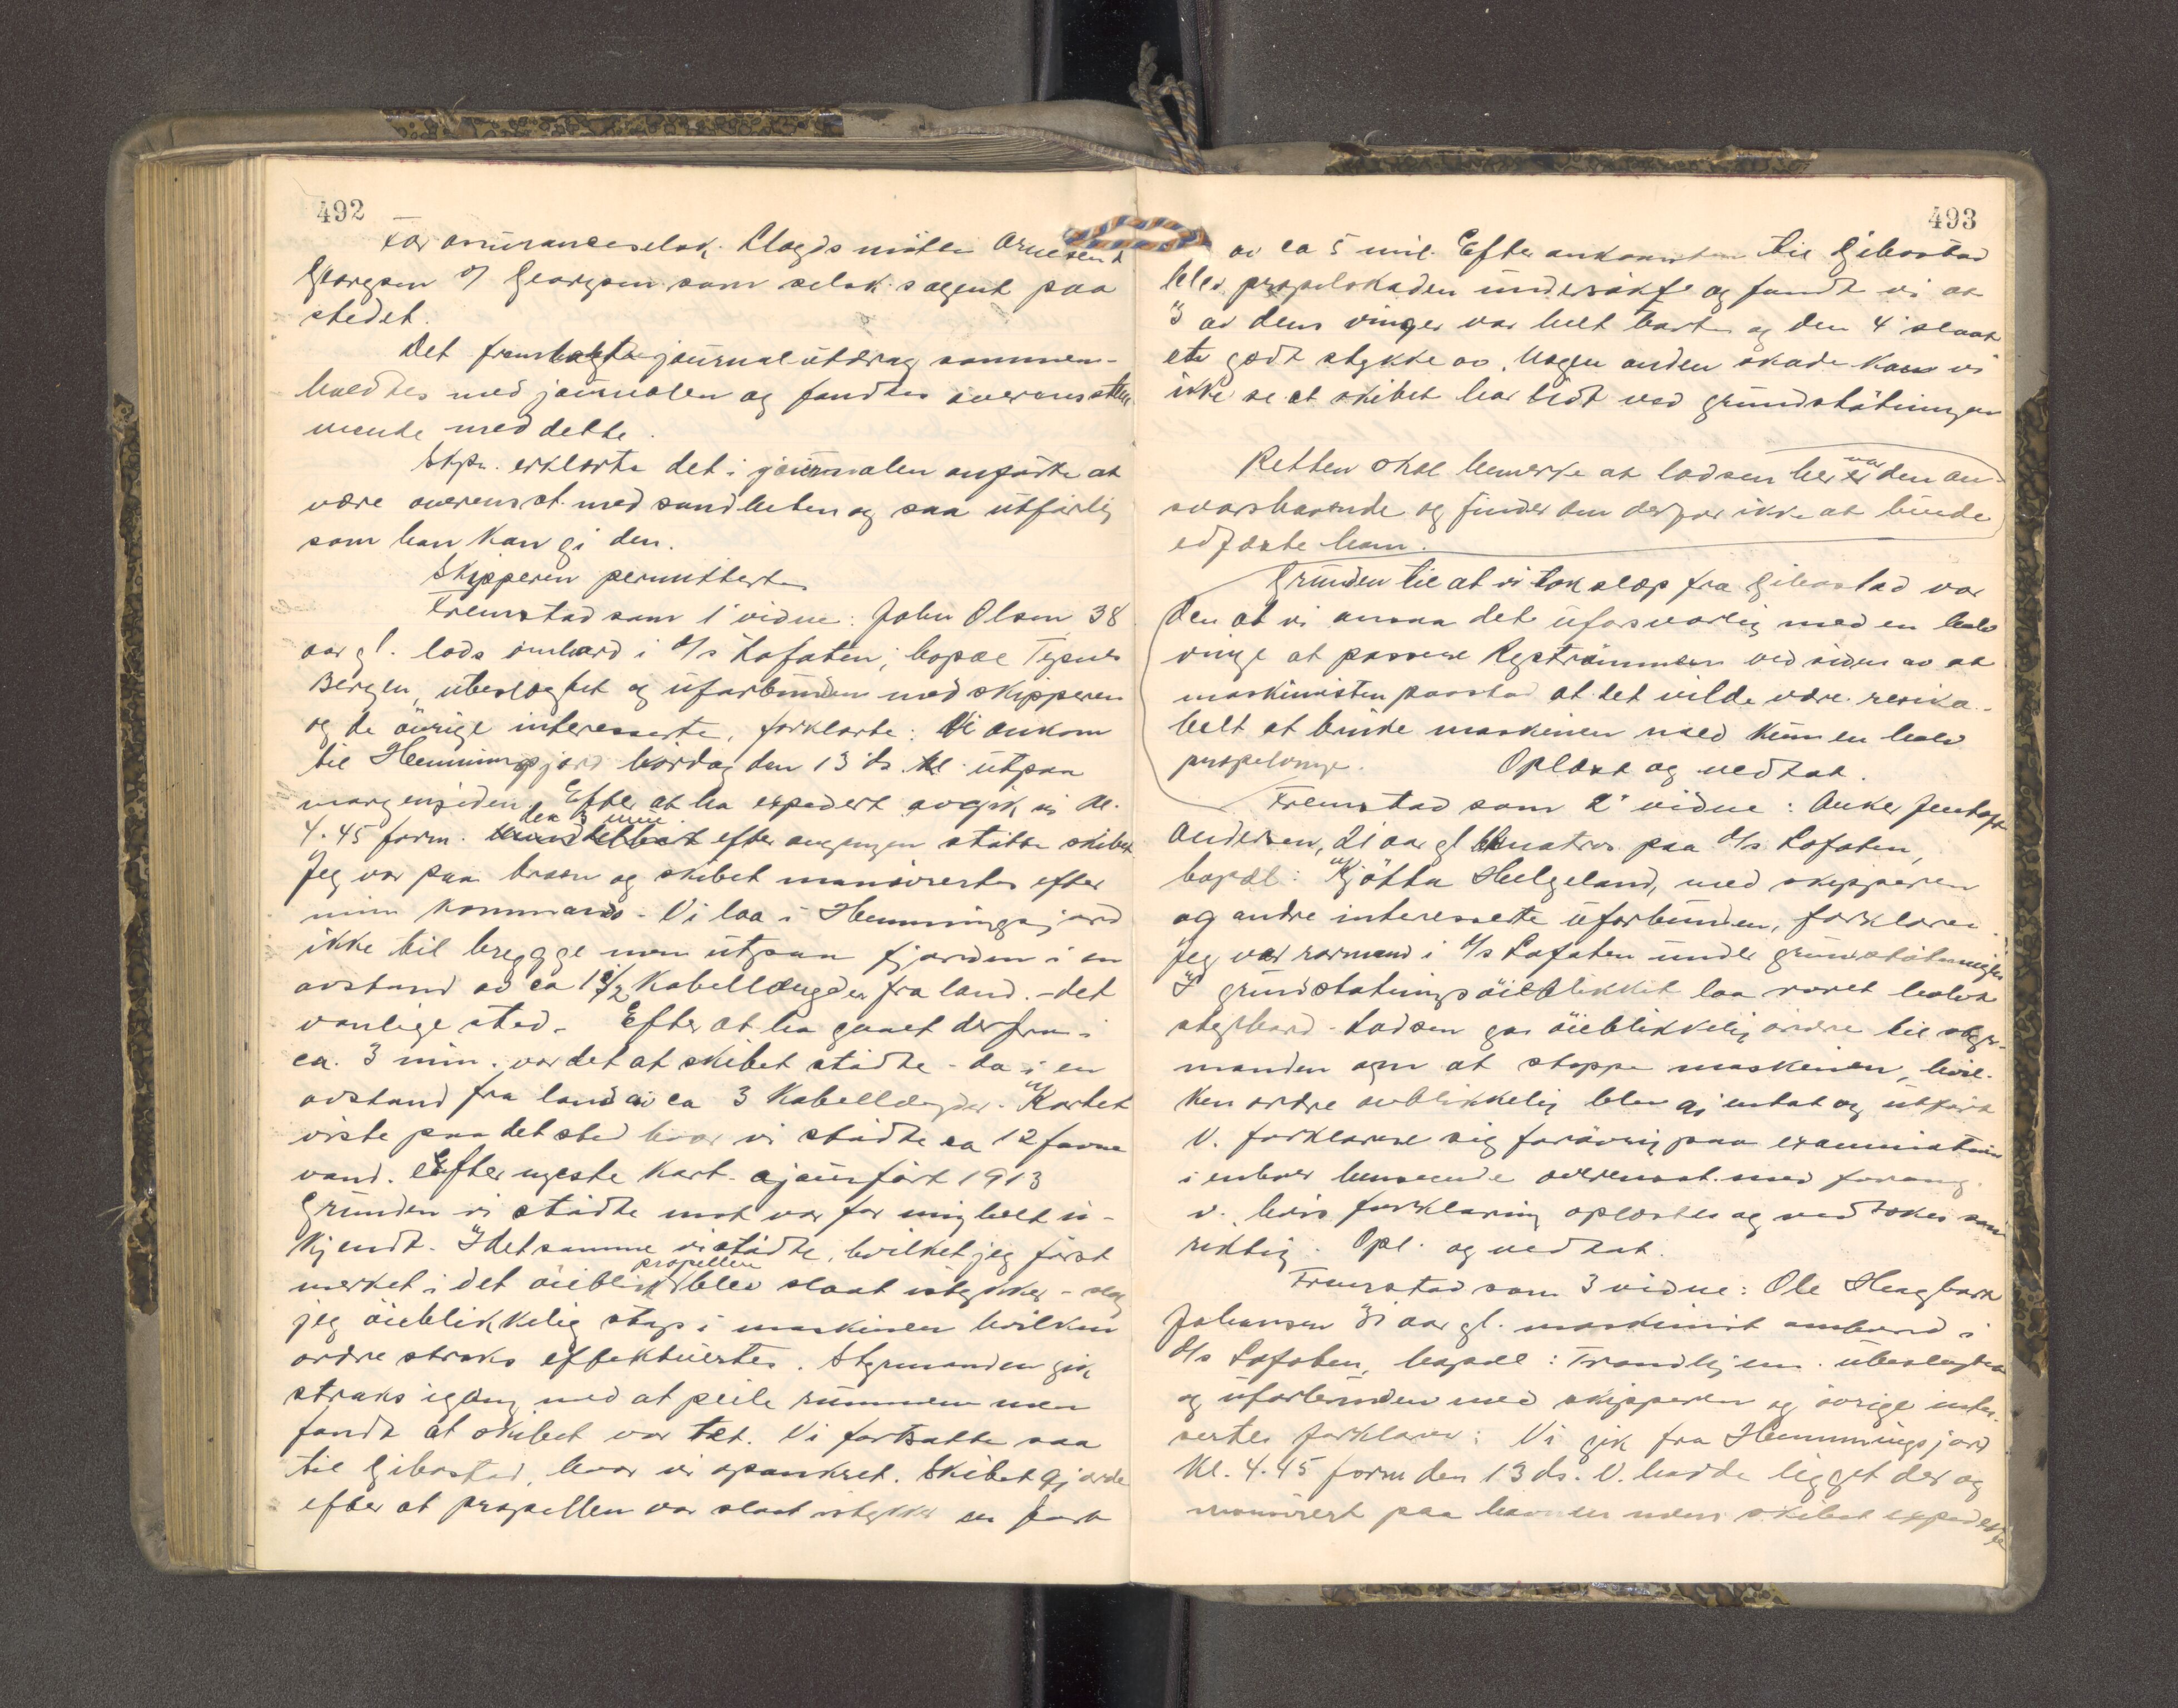 492
For assuranceselsk. Lloyds møtte Arnesen &
Georgsen v/ Georgsen som selsk.s agent paa
stedet.
Det fremlagte journalutdrag sammen-
holdtes med journalen og fandtes overensstem
mende med dette.
Skpr. erklærte det i journalen anførte at
være overenst. med sandheten og saa utførlig
som han kan gi den.
Skipperen permitterte
Fremstod som 1' vidne: John Olsen 38
aar gl. lods ombord i D/s Lofoten, bopæl
Bergen, ubeslægtet og uforbunden med skipperen
og de øvrige interesserte, forklarte: Vi ankom
til Hemmingsjord lørdag den 13 ds. kl. utpaa
morgensiden. Efter at ha expedert avgik vi kl.
4.45 form. ca 3 min. efter avgangen støtte skibet
Jeg var paa broen og skibet manøvrertes efter
min kommando. Vi laa i Hemmingsjord
ikke til brygge men utpaa fjorden i en
avstand av ca 1 1/2 Kabellængder fra land. - det
vanlige sted. Efter at ha gaaet derfra i
ca. 3 min. var det at skibet stødte - da i en
avstand fra land av ca 3 Kabellængder. Kartet
viste paa det sted hvor vi stødte ca 12 favne
vand. Efter nyeste kart - ajourført 1913
Grunden vi stødte mot var for mig helt u-
kjendt. I det samme vi stødte, hvilket jeg først
merket i det øieblik propellen blev slaat istykker - slog
jeg øieblikkelig stop i maskinen hvilken
ordre straks effektuertes. Styrmanden gik
straks igang med at peile rummene men
fandt at skibet var tæt. Vi fortsatte saa
til Gibostad, hvor vi opankret. Skibet gjorde
efter at propellen var slaat istykker en fart
493
av ca 5 mil. Efter ankomsten til Gibostad
blev propelskaden undersøkt og fandt vi at
3 av dens vinger var helt borte og den 4' slaat
et godt stykke av. Nogen anden skade kan vi
ikke se at skibet har lidt ved grundstøtningen
Retten skal bemerke at lodsen her var den an-
svarshavende og finder den derfor ikke at burde
edfæste ham.
Grunden til at vi tok slæp fra Gibostad var
den at vi ansaa det uforsvarlig med en halv
vinge at passere Rystrømmen ved siden av at
maskinisten paastod at det vilde være resika-
belt at bruke maskinen med kun en halv
propelvinge. Oplæst og vedtat.
Fremstod som 2' vidne: Anker Jentoft
Andersen, 21 aar gl matros paa D/s Lofoten,
bopæl: Tjøtta Helgeland, med skipperen
og andre interesserte uforbunden, forklarer:
Jeg var rormand i D/s Lofoten under grundstøtningen
I grundstøtningsøieblikket laa roret halvt
styrbord. Lodsen gav øieblikkelig ordre til styr-
manden om at stoppe maskinen, hvil-
ken ordre øieblikkelig blev gjentat og utført
V. forklarer sig forøvrig paa examination
i enhver henseende overenst. med foreg.
v. hvis forklaring oplæstes og vedtokes som
riktig. Opl. og vedtat.
Fremstod som 3 vidne: Ole Hagbart
Johansen 31 aar gl. maskinist ombord i
D/s Lofoten, bopæl: Trondhjem. ubeslægtet
og uforbunden med skipperen og øvrige inter-
serte, forklarer: Vi gik fra Hemmingsjord
kl. 4.45 form den 13 ds. V. hadde ligget der og
manøvrert paa havnen mens skibet expederte